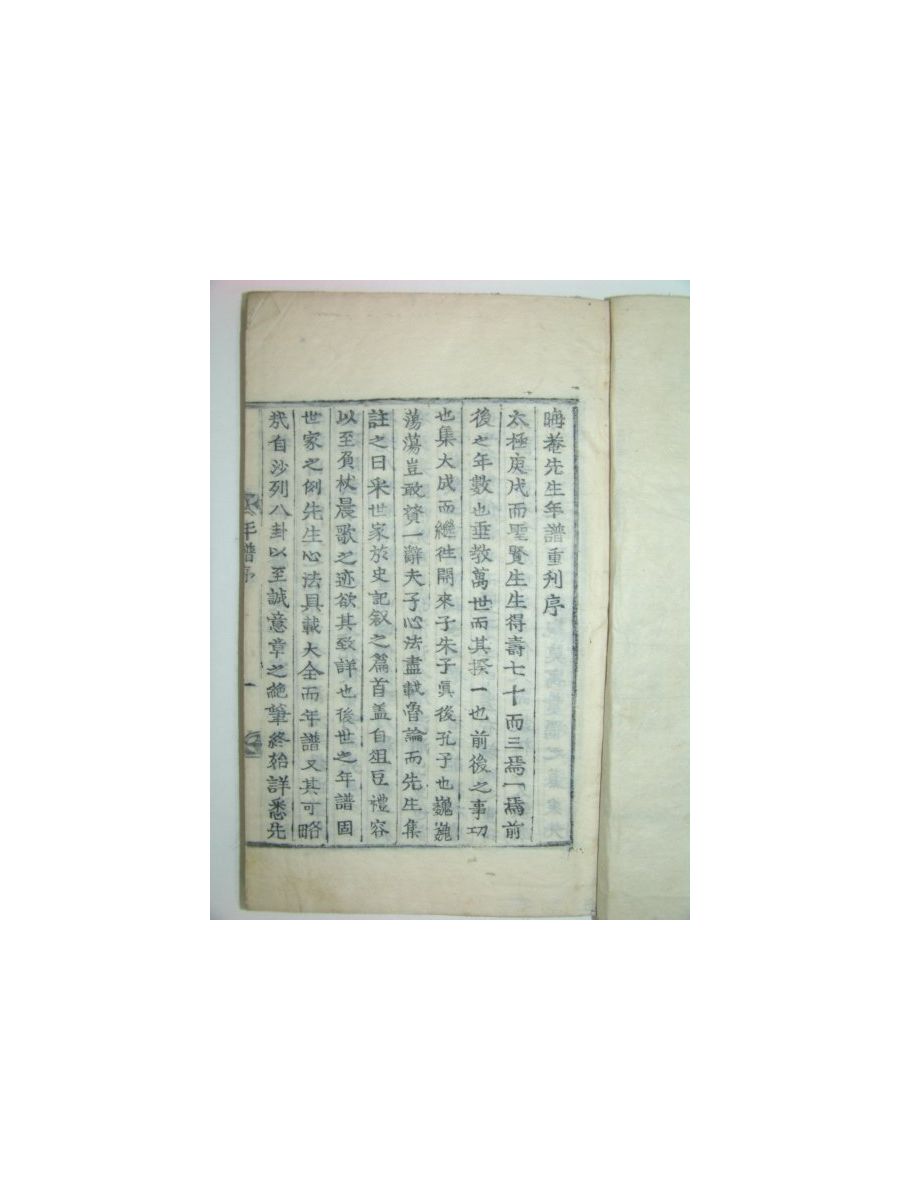 晦菴先生年譜重刋序
太極庚戌而聖賢生生得壽七十而三焉一焉前
後之年數也垂敎萬世而其揆一也前後之事功
也集大成而繼徃開來子朱子眞後孔子也巍巍
蕩蕩豈敢贊一辭夫子心法盡載魯論而先生集
註之日采世家於史記叙之篇首盖自俎豆禮容
以至負杖晨歌之迹欲其致詳也後世之年譜固
世家之例先生心法具載大全而年譜又其可略
㢤自沙列八卦以至誠意章之絶筆終始詳悉先
年譜序
一